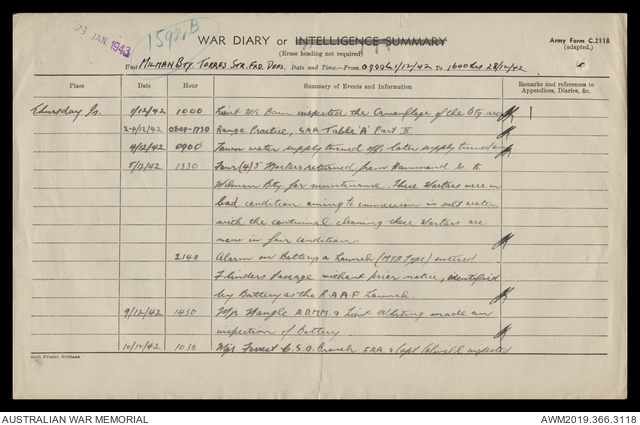 29 JAN 1943
15921B
WAR DIARY or INTELLIGENCE SUMMARY
(Erase heading not required)
Army Form C.2118
(adapted.)
Unit MILMAN BTY. TORRES STR. FXD. DEFS. Date and Time—From 0900 hrs 1/12/42 To 1600 hrs 28/12/42
Place Date Hour Summary of Events and Information Remarks and references to
Appendices, Diaries, &c.
Thursday Is. 1/12/42 1000 Lieut Mc Bain inspected the Camouflage of the Bty area
2-4/12/42 0800-1730 Range Practice, SAA Table 'A' Part II.
4/12/42 0900 Town water supply turned off, later supply turned on
5/12/42 1330 Four (4) 3" Mortars returned from Hammond Is. to
Milman Bty. for maintenance. These Mortars were in
bad condition owing to immersion in salt water
with the continual cleaning these Mortars are
now in fair condition.
2140 Alarm on Battery a Launch (MTB Type) entered
Flinders Passage without prior notice, identified
by Battery as the RAAF Launch.
9/12/42 1430 Mjr Nangle A.D.M.M. & Lieut Whiting made an
inspection of Battery
10/12/42 1030 Mjr Forrest G.S.O. Branch SAA. & Capt inspected
Govt. Printer, Brisbane
AUSTRALIAN WAR MEMORIAL
AWM2019.366.3118